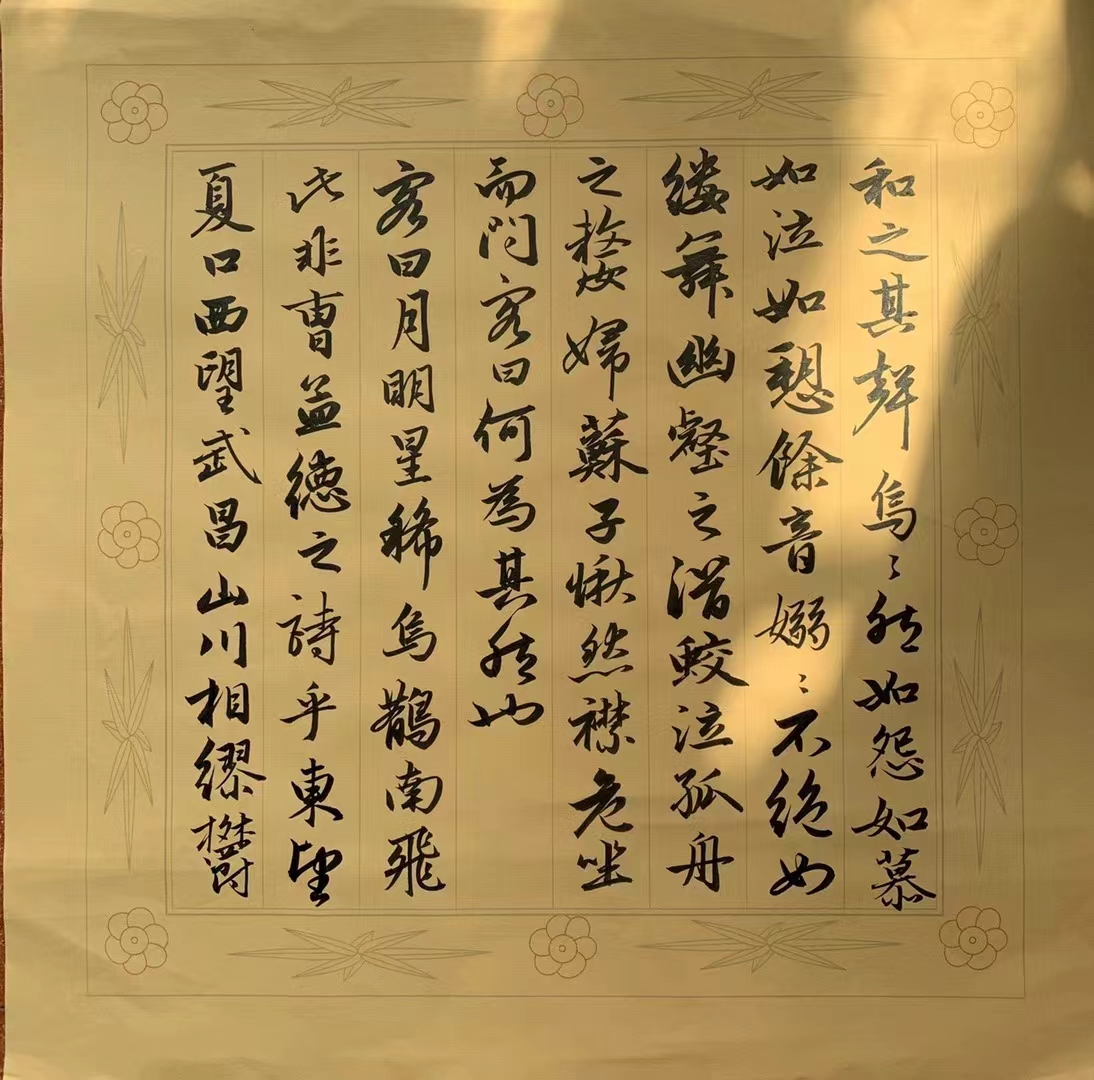 和之其聲烏〻然如怨如慕
如泣如愬餘音嫋〻不絕如
縷舞幽壑之潛蛟泣孤舟
之嫠婦蘇子愀然襟危坐
而問客曰何為其然也
客曰月明星稀烏鵲南飛
此非曹孟德之詩乎東望
夏口西望武昌山川相繆鬱